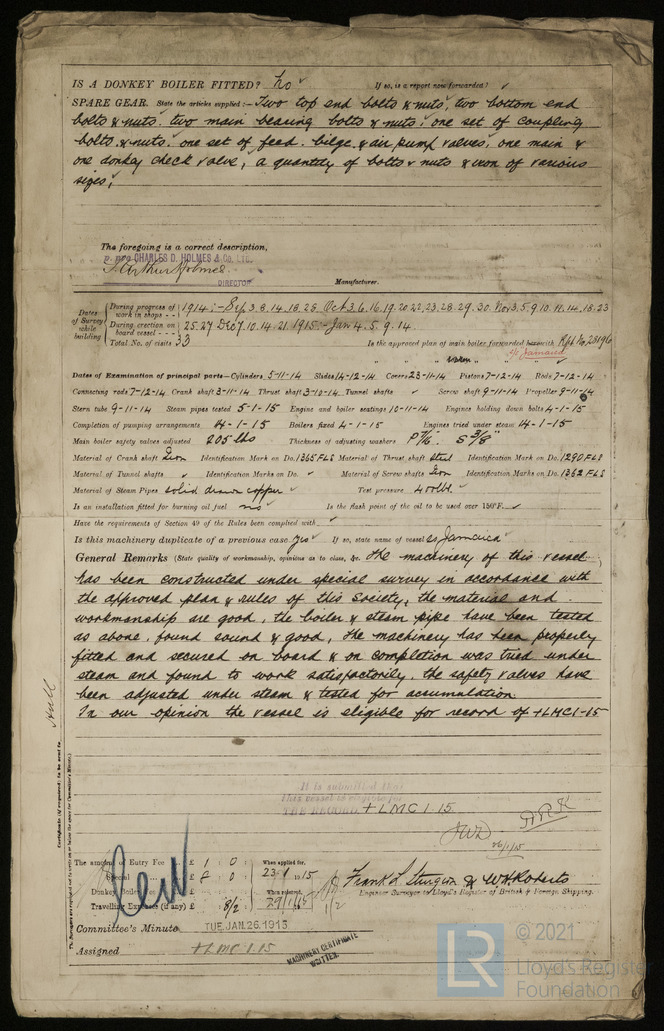 IS A DONKEY BOILER FITTED? No ✓ If so, is a report now forwarded? ✓
SPARE GEAR. State the articles supplied:— Two top end bolts & nuts, two bottom end
bolts & nuts. two main bearing bolts & nuts; one set of coupling
bolts & nuts. one set of feed. bilge & air pump valves; one main &
one donkey check valve; a quantity of bolts & nuts & iron of various
sizes;
The foregoing is a correct description,
p. pro CHARLES D. HOLMES & Co. LTD.
Arthur Holmes.
DIRECTOR Manufacturer.
Dates of Survey while building
During progress of work in shops - - 1914:- Sep 3.8.14.18.25 Oct 3.6.16.19.20.22.23.28.29.30 Nov 3.5.9.10.11.14.18.23
During erection on board vessel - - - 25.27 Dec 7.10.14.21. 1915:- Jan 4.5.9.14
Total No. of visits 33 Is the approved plan of main boiler forwarded herewith Rpt No. 28196
s/s Jamaica
Dates of Examination of principal parts—Cylinders 5-11-14 Slides 14-12-14 Covers 23-11-14 Pistons 7-12-14 Rods 7-12-14
Connecting rods 7-12-14 Crank shaft 3-11-14 Thrust shaft 3-10-14 Tunnel shafts ✓ Screw shaft 9-11-14 Propeller 9-11-14
Stern tube 9-11-14 Steam pipes tested 5-1-15 Engine and boiler seatings 10-11-14 Engines holding down bolts 4-1-15
Completion of pumping arrangements 14-1-15 Boilers fixed 4-1-15 Engines tried under steam 14-1-15
Main boiler safety valves adjusted 205 lbs Thickness of adjusting washers P 7/16" S 3/8"
Material of Crank shaft Iron Identification Mark on Do. 1365 FLS Material of Thrust shaft steel Identification Mark on Do. 1290 FLS
Material of Tunnel shafts ✓ Identification Marks on Do. ✓ Material of Screw shafts Iron Identification Marks on Do. 1362 FLS
Material of Steam Pipes solid drawn copper ✓ Test pressure 400 lbs. ✓
Is an installation fitted for burning oil fuel no ✓ Is the flash point of the oil to be used over 150°F. ✓
Have the requirements of Section 49 of the Rules been complied with ✓
Is this machinery duplicate of a previous case yes ✓ If so, state name of vessel ss Jamaica ✓
General Remarks (State quality of workmanship, opinions as to class, &c. The machinery of this vessel
has been constructed under special survey in accordance with
the approved plan & rules of this Society, the material and
workmanship are good, the boiler & steam pipe have been tested
as above, found sound & good, the machinery has been properly
fitted and secured on board & on completion was tried under
steam and found to work satisfactorily. the safety valves have
been adjusted under steam & tested for accumulation
In our opinion the vessel is eligible for record of +LMC 1-15
Hull
Certificate (if required) to be sent to
It is submitted that
this vessel is eligible for
THE RECORD. + LMC 1.15
JWD
26/1/15
The amount of Entry Fee £ 1 : 0 When applied for,
Special £ 8 : 0 23.1.15
Donkey Boiler Fee £ When received,
Travelling Expenses (if any) £ 8/2 29/1/15
Frank L. Sturgeon & W. H. Roberts
Engineer Surveyor to Lloyd's Register of British & Foreign Shipping.
Committee's Minute TUE. JAN. 26. 1915
Assigned + LMC 1.15
MACHINERY CERTIFICATE
WRITTEN.
LR
© 2021
Lloyd's Register
Foundation